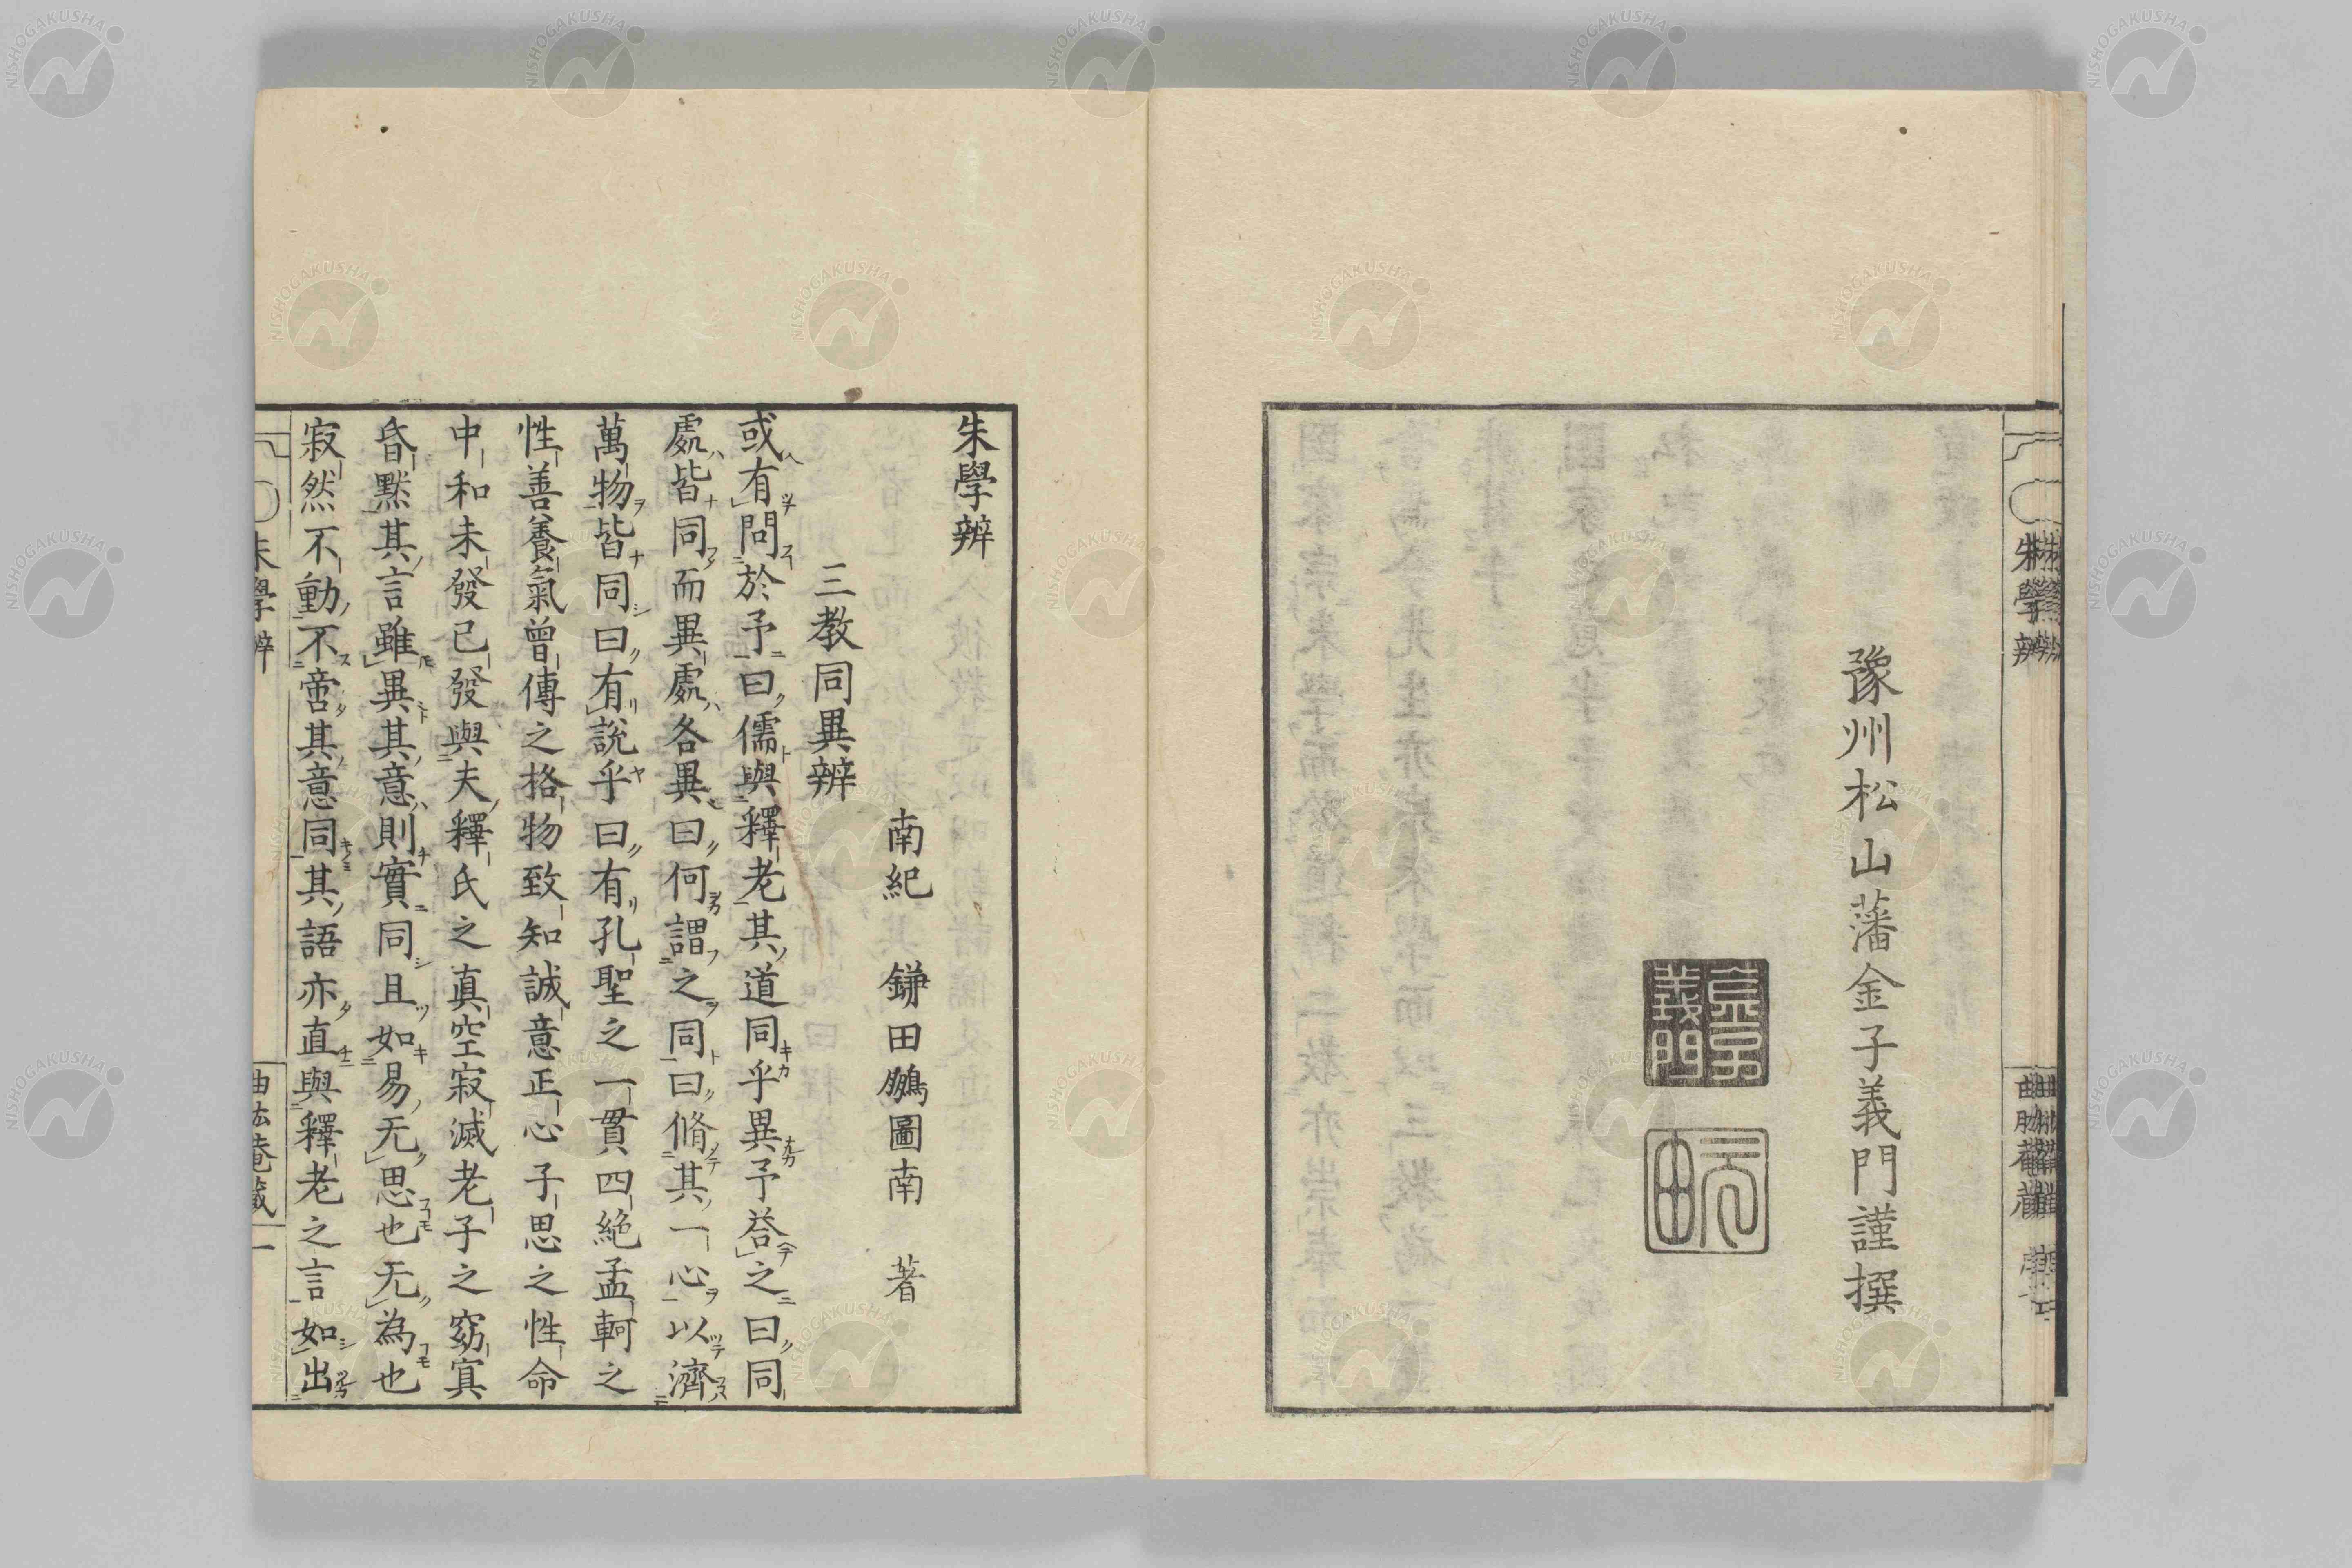 豫州松山藩金子義門謹撰
朱學辨
朱學辨
南紀 鎌田鵬圖南 著
三教同異辨
或有問於予曰儒與釋老其道同乎異予荅之曰同
處皆同而異處各異曰何謂之同曰脩其一心以濟
萬物皆同曰有說乎曰有孔聖之一貫四絶孟軻之
性善養氣曾傳之格物致知誠意正心子思之性命
中和未發已發與夫釋氏之真空寂滅老子之窈冥
昏黙其言雖異其意則實同且如易无思也无為也
寂然不動不啻其意同其語亦直與釋老之言如出
朱學辨
一
NISHOGAKUSHA